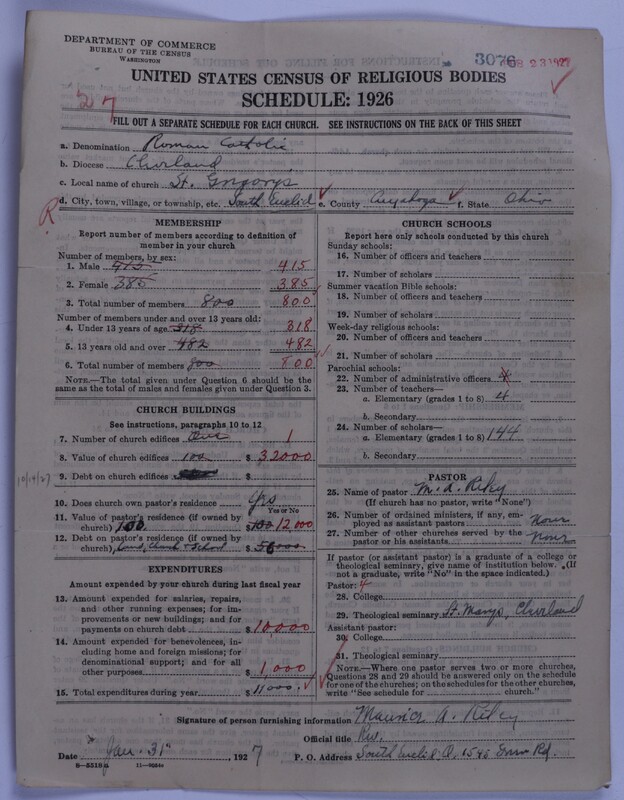 DEPARTMENT OF COMMERCE
BUREAU OF THE CENSUS
WASHINGTON
3076 FEB 23 1927
UNITED STATES CENSUS OF RELIGIOUS BODIES
SCHEDULE: 1926
27
FILL OUT A SEPARATE SCHEDULE FOR EACH CHURCH. SEE INSTRUCTIONS ON THE BACK OF THIS SHEET
a. Denomination Roman Catholic
b. Diocese Cleveland
c. Local name of church St. Gregorys
R d. City, town, village, or township, etc. South Euclid e. County Cuyahoga f. State Ohio
MEMBERSHIP
Report number of members according to definition of
member in your church
Number of members, by sex:
1. Male 415 415
2. Female 385 385
3. Total number of members 800 800
Number of members under and over 13 years old:
4. Under 13 years of age 318 318
5. 13 years old and over 482 482
6. Total number of members 800 800
NOTE.—The total given under Question 6 should be
same as the total of males and females given under Question 3.
CHURCH BUILDINGS
See instructions, paragraphs 10 to 12
7. Number of church edifices One 1
8. Value of church edifices 100 $ 32000
10/19/27 9. Debt on church edifices $
10. Does church own pastor's residence Yes
Yes or No
11. Value of pastor's residence (if owned by
church) 100 $ 12000
12. Debt on pastor's residence (if owned by
church) Land, Church + School $ 56000
EXPENDITURES
Amount expended by your church during last fiscal year
13. Amount expended for salaries, repairs,
and other running expenses; for im-
provements or new buildings; and for
payments on church debt $ 10000
14. Amount expended for benevolences, in-
cluding home and foreign missions; for
denominational support; and for all
other purposes $ 1,000
15. Total expenditures during year $ 11000
CHURCH SCHOOLS
Report here only schools conducted by this church
Sunday schools:
16. Number of officers and teachers
17. Number of scholars
Summer vacation Bible schools:
18. Number of officers and teachers
19. Number of scholars
Week-day religious schools:
20. Number of officers and teachers
21. Number of scholars
Parochial schools:
22. Number of administrative officers
23. Number of teachers—
a. Elementary (grades 1 to 8) 4
b. Secondary
24. Number of scholars—
a. Elementary (grades 1 to 8) 144
b. Secondary
PASTOR
25. Name of pastor M. A. Riley
(If church has no pastor, write "None")
26. Number of ordained ministers, if any, em-
ployed as assistant pastors None
27. Number of other churches served by the
pastor or his assistants None
If pastor (or assistant pastor) is a graduate of a college or
theological seminary, give name of institution below. (If
not a graduate, write "No" in the space indicated.)
Pastor: 4
28. College
29. Theological seminary St. Marys, Cleveland
Assistant pastor:
30. College
31. Theological seminary
NOTE.—Where one pastor serves two or more churches,
Questions 28 and 29 should be answered only on the schedule
for one of the churches; on the schedules for the other churches,
write "See schedule for church."
Signature of person furnishing information Maurice A. Riley
Official title Rev.
Date Jan. 31st, 1927 P. O. Address South Euclid, O. 1545 Green Rd.
8—5510a 11—9084